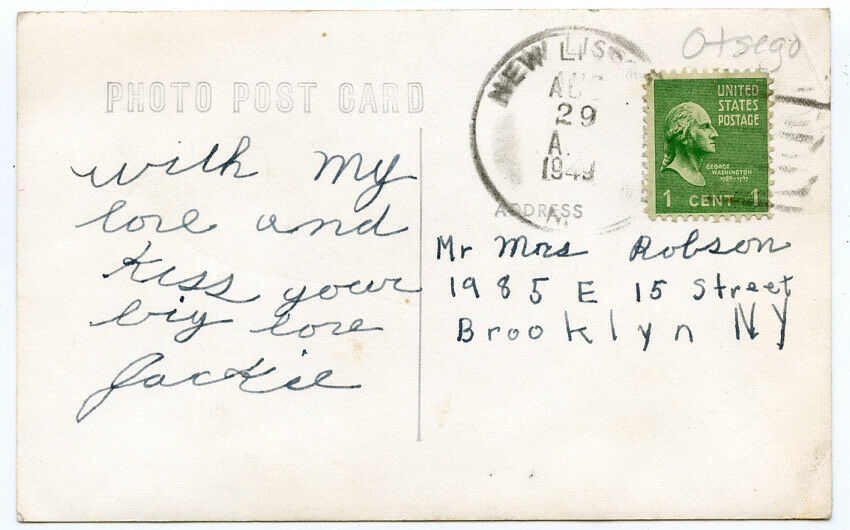 Otsego
PHOTO POST CARD
NEW LIS
AUG
29
A.
1949
UNITED
STATES
POSTAGE
GEORGE
WASHINGTON
1789-1797
1 CENT 1
ADDRESS
with my
love and
kiss your
big love
Jackie
Mr Mrs Robson
1985 E 15 Street
Brooklyn NY